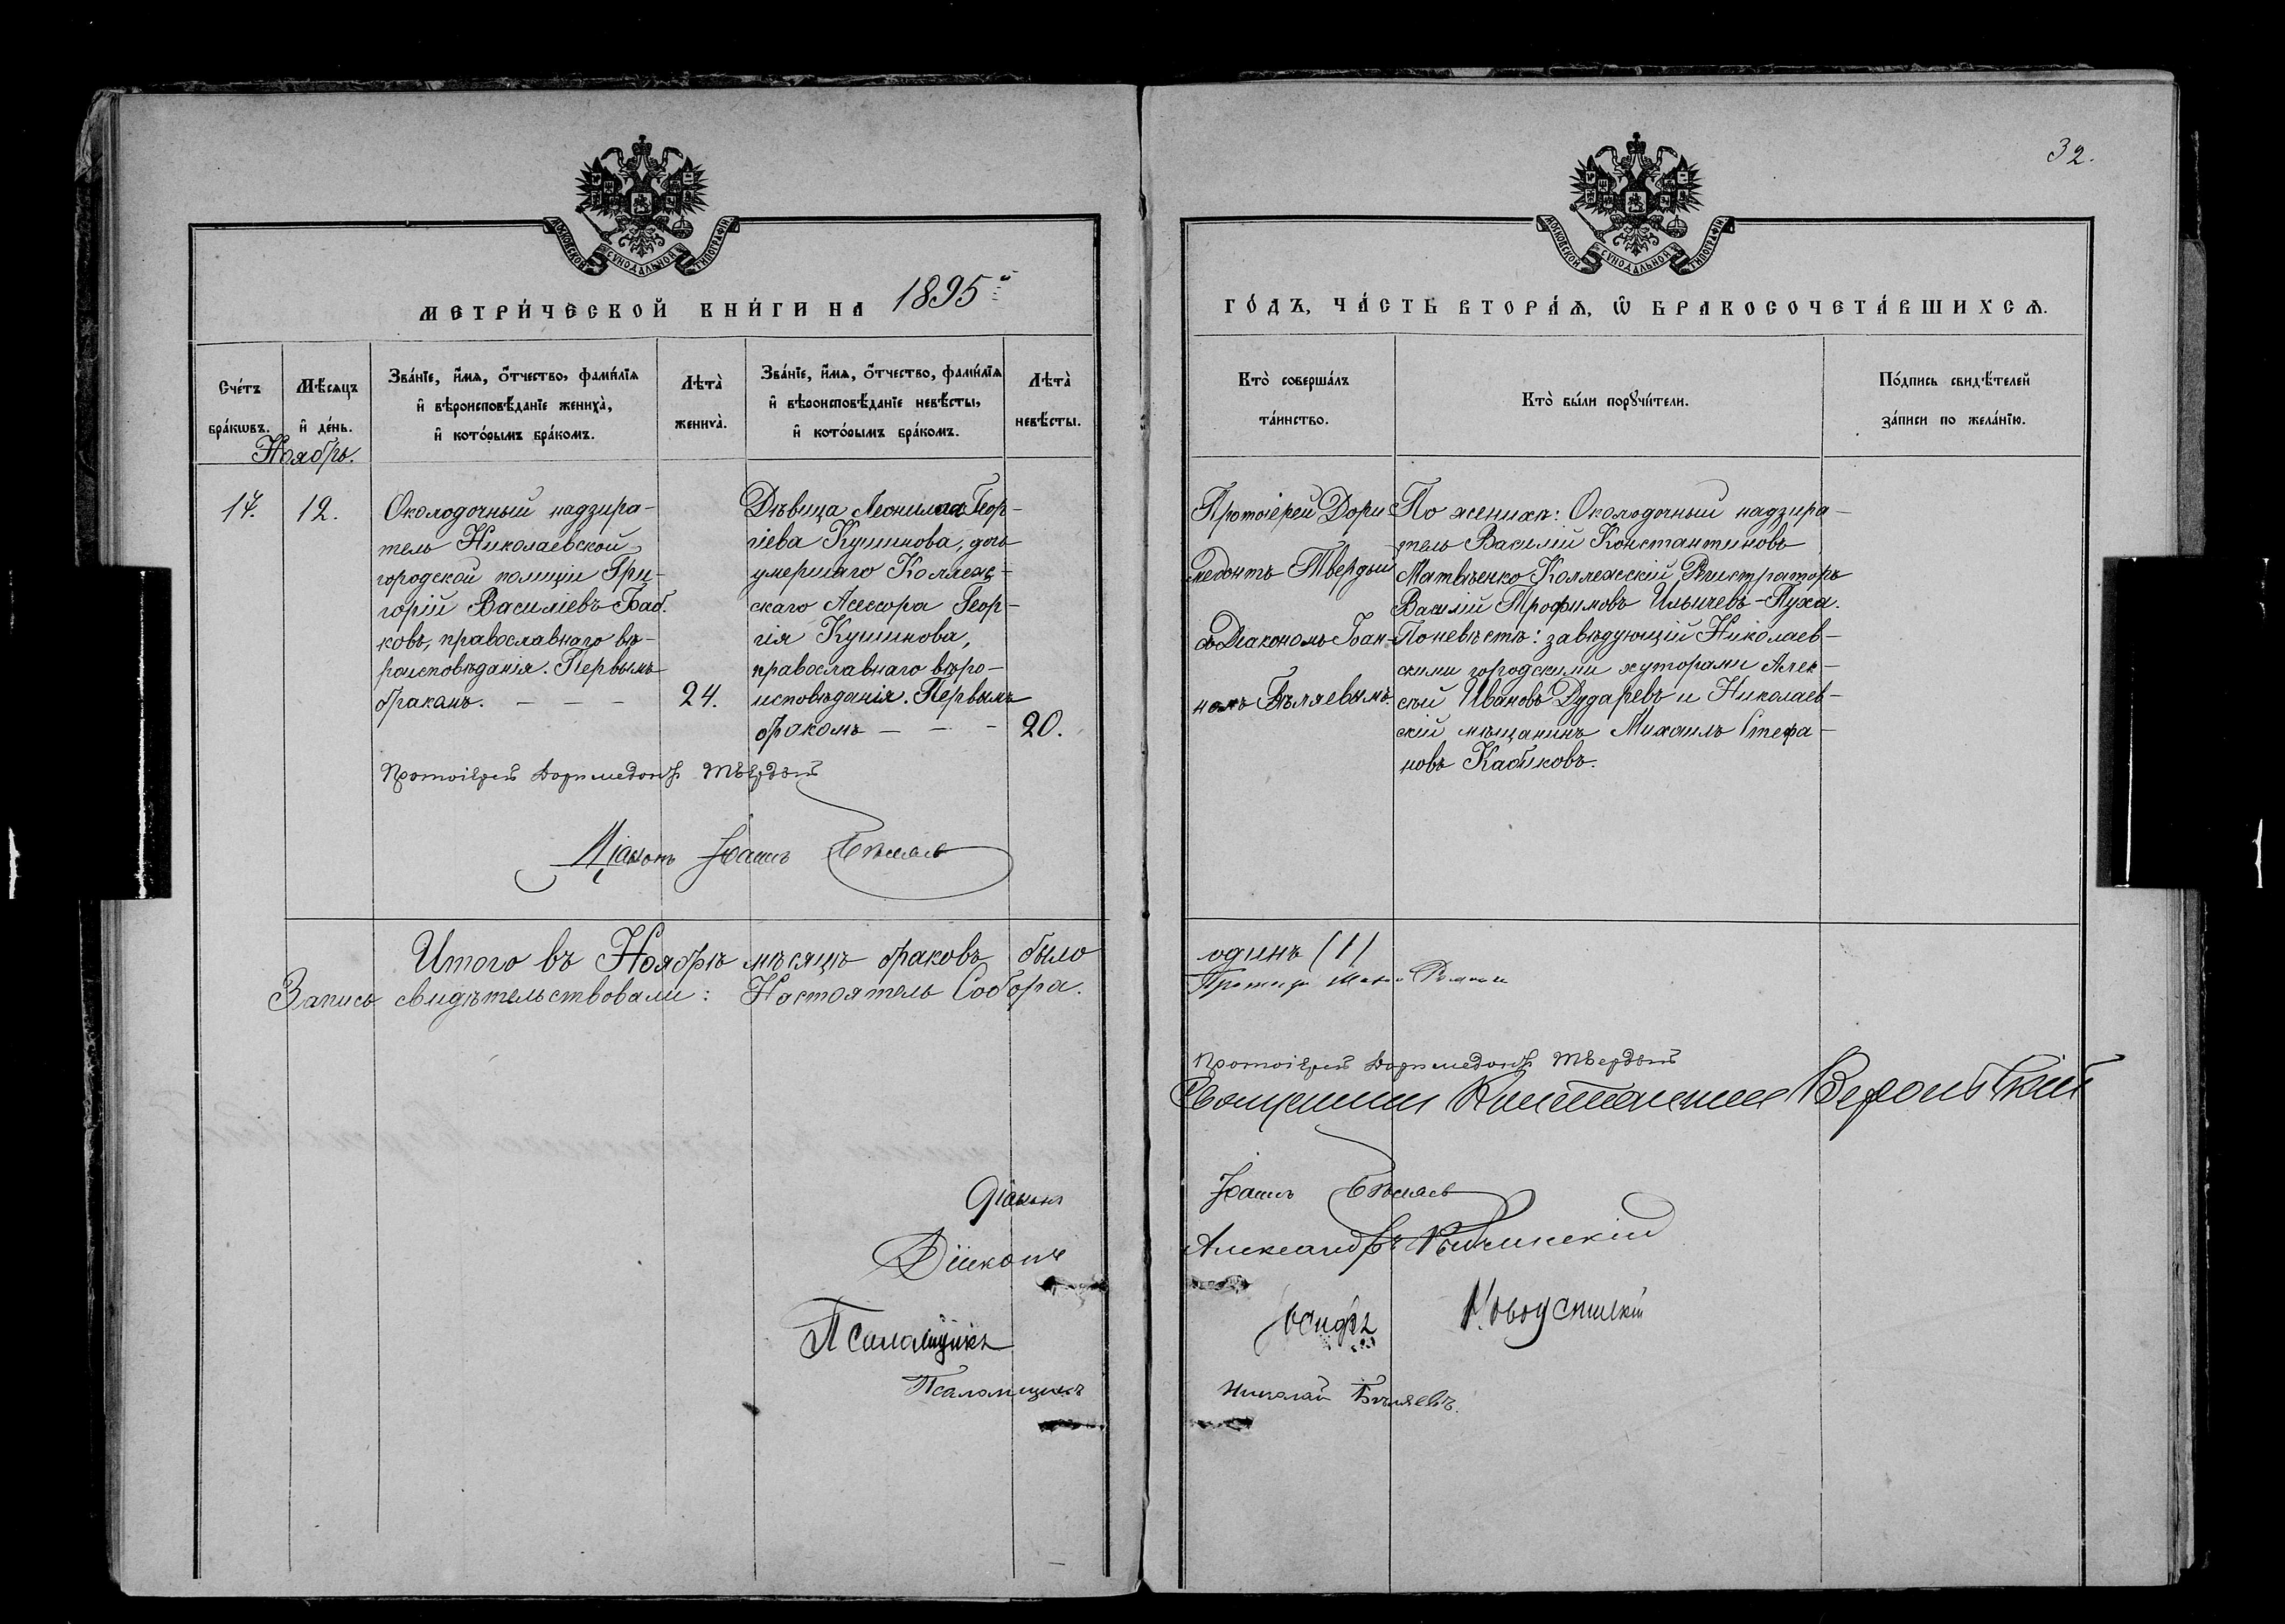 32.
МОСКОВСКОЙ СѴНОДАЛЬНОЙ ТИПОГРАФІИ.
МОСКОВСКОЙ СѴНОДАЛЬНОЙ ТИПОГРАФІИ.
МЕТРИ́ЧЕСКОЙ КНИ́ГИ НА 1895й
ГО́ДЪ, ЧА́СТЬ ВТОРА́Ѧ, Ѿ БРАКОСОЧЕТА́ВШИХСѦ.
Сче́тъ
бра́кѡвъ.
Мѣ́сяцъ
и҆ де́нь.
Зва́нїе, и҆́мѧ, ѻ҆́тчество, фами́лїѧ
и҆ вѣроисповѣ́данїе жениха̀,
и҆ кото́рымъ бра́комъ.
Лѣта̀
жениха̀.
Зва́нїе, и҆́мѧ, ѻ҆́тчество, фами́лїѧ
и҆ вѣроисповѣ́данїе невѣ́сты,
и҆ кото́рымъ бра́комъ.
Лѣта̀
невѣ́сты.
Кто̀ соверша́лъ
та́инство.
Кто̀ бы́ли порꙋчи́тели.
По́дпись свидѣ́телей
за́писи по жела́нїю.
Ноябрь.
17. 12.
Околодочный надзира-
тель Николаевской
городской полиціи Гри-
горій Василіевъ Баб.
ковъ, православнаго вѣ-
роисповѣданія. Первымъ
бракомъ. — — — 24.
Дѣвица Леонилла Геор-
гіева Кушинова, дочь
умершаго Коллеж-
скаго Асессора Геор-
гія Кушинова,
православнаго вѣро-
исповѣданія. Первымъ
бракомъ — — — 20.
Протоіерей Дори
медонтъ Твердый
съ Діакономъ Іоан-
номъ Бѣляевымъ.
По женихѣ: Околодочный надзира-
тель Василій Константиновъ
Матвѣенко Коллежскій Регистраторъ
Василій Трофимовъ Ильичевъ-Пуха.
По невѣстѣ: завѣдующій Николаев-
скими городскими хуторами Алек-
сѣй Ивановъ Дударевъ и Николаев-
скій мѣщанинъ Михаилъ Стефа-
новъ Кабиковъ.
Протоіерей Доримедонтъ Твердый
Діаконъ Іоаннъ Бѣляевъ
Итого въ Ноябрѣ мѣсяцѣ браковъ было
одинъ (1)
Запись свидѣтельствовали: Настоятель Собора.
Протоіерей Доримедонтъ Твердый
Священникъ Константинъ
Діаконъ Іоаннъ Бѣляевъ
Діаконъ Александръ
Псаломщикъ Іосифъ
Псаломщикъ Николай Бѣляевъ.